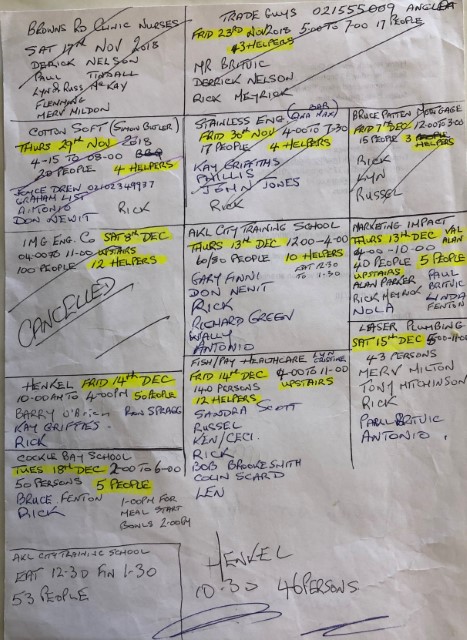 BROWNS RD CLINIC NURSES
SAT 17TH NOV 2018
DERRICK NELSON
PAUL TINDALL
LYN & RUSS McKAY
FLEMMING
MERV MILDON
TRADE GUYS 021555009 ANGELA
FRID 23RD NOV 2018 5:00 TO 7:00 17 PEOPLE
3 HELPERS
MR BRITVIC
DERRICK NELSON
RICK MEYRICK
COTTON SOFT (SIMON BUTLER)
THURS 29TH NOV 2018
4-15 TO 08-00 BBQ
20 PEOPLE 4 HELPERS
JOYCE DREW 02102349937
GRAHAM LIST
ANTONIO
DON NEWIT RICK
STAINLESS ENG. (BAR
FRID 30TH NOV 4-00 TO 7-30
17 PEOPLE 4 HELPERS
KAY GRIFFITHS
PHILLIS
JOHN JONES
RICK
BRUCE PATTEN MORTGAGE
FRID 7TH DEC 12:00 TO 3:00
15 PEOPLE 3 HELPERS
RICK
LYN
RUSSEL
IMG ENG. CO SAT 8TH DEC
04:00 TO 11-00 UPSTAIRS
100 PEOPLE 12 HELPERS
CANCELLED
AKL CITY TRAINING SCHOOL
THURS 13TH DEC 12:00-4:00
60/80 PEOPLE 10 HELPERS
EAT 12:30
TO 1-30
GARY FINNI
DON NEWIT
RICK
RICHARD GREEN
WALLY
ANTONIO
MARKETING IMPACT
THURS 13TH DEC VAL
4-00-10.00 ALAN
40 PEOPLE 5 PEOPLE
UPSTAIRS PAUL
ALAN PARKER BRITVIC
RICK MEYRICK LINDA
NOLA FENTON
LASER PLUMBING
SAT 15TH DEC 5:00-11:00
43 PERSONS
MERV MILTON
TONY HITCHINSON
RICK
PAUL BRITVIC
ANTONIO
HENKEL FRID 14TH DEC
10:00 AM TO 4:00PM 50 PEOPLE
BARRY O'BRIEN RON SPRAGG
KAY GRIFFIES
RICK
FISH/PAY HEALTHCARE LYN
FRID 14TH DEC 4-00 TO 11-00
140 PERSONS UPSTAIRS
12 HELPERS
SANDRA SCOTT
RUSSEL
KEN/CECI.
RICK
BOB BROOKESMITH
COLIN SCARD
LEN
COCKLE BAY SCHOOL
TUES 18TH DEC 2:00 TO 6-00
50 PERSONS 5 PEOPLE
BRUCE FENTON 1-00PM FOR
RICK MEAL START
BOWLS 2-00PM
AKL CITY TRAINING SCHOOL
EAT 12-30 FIN 1-30
53 PEOPLE
HENKEL
10-30 46 PERSONS